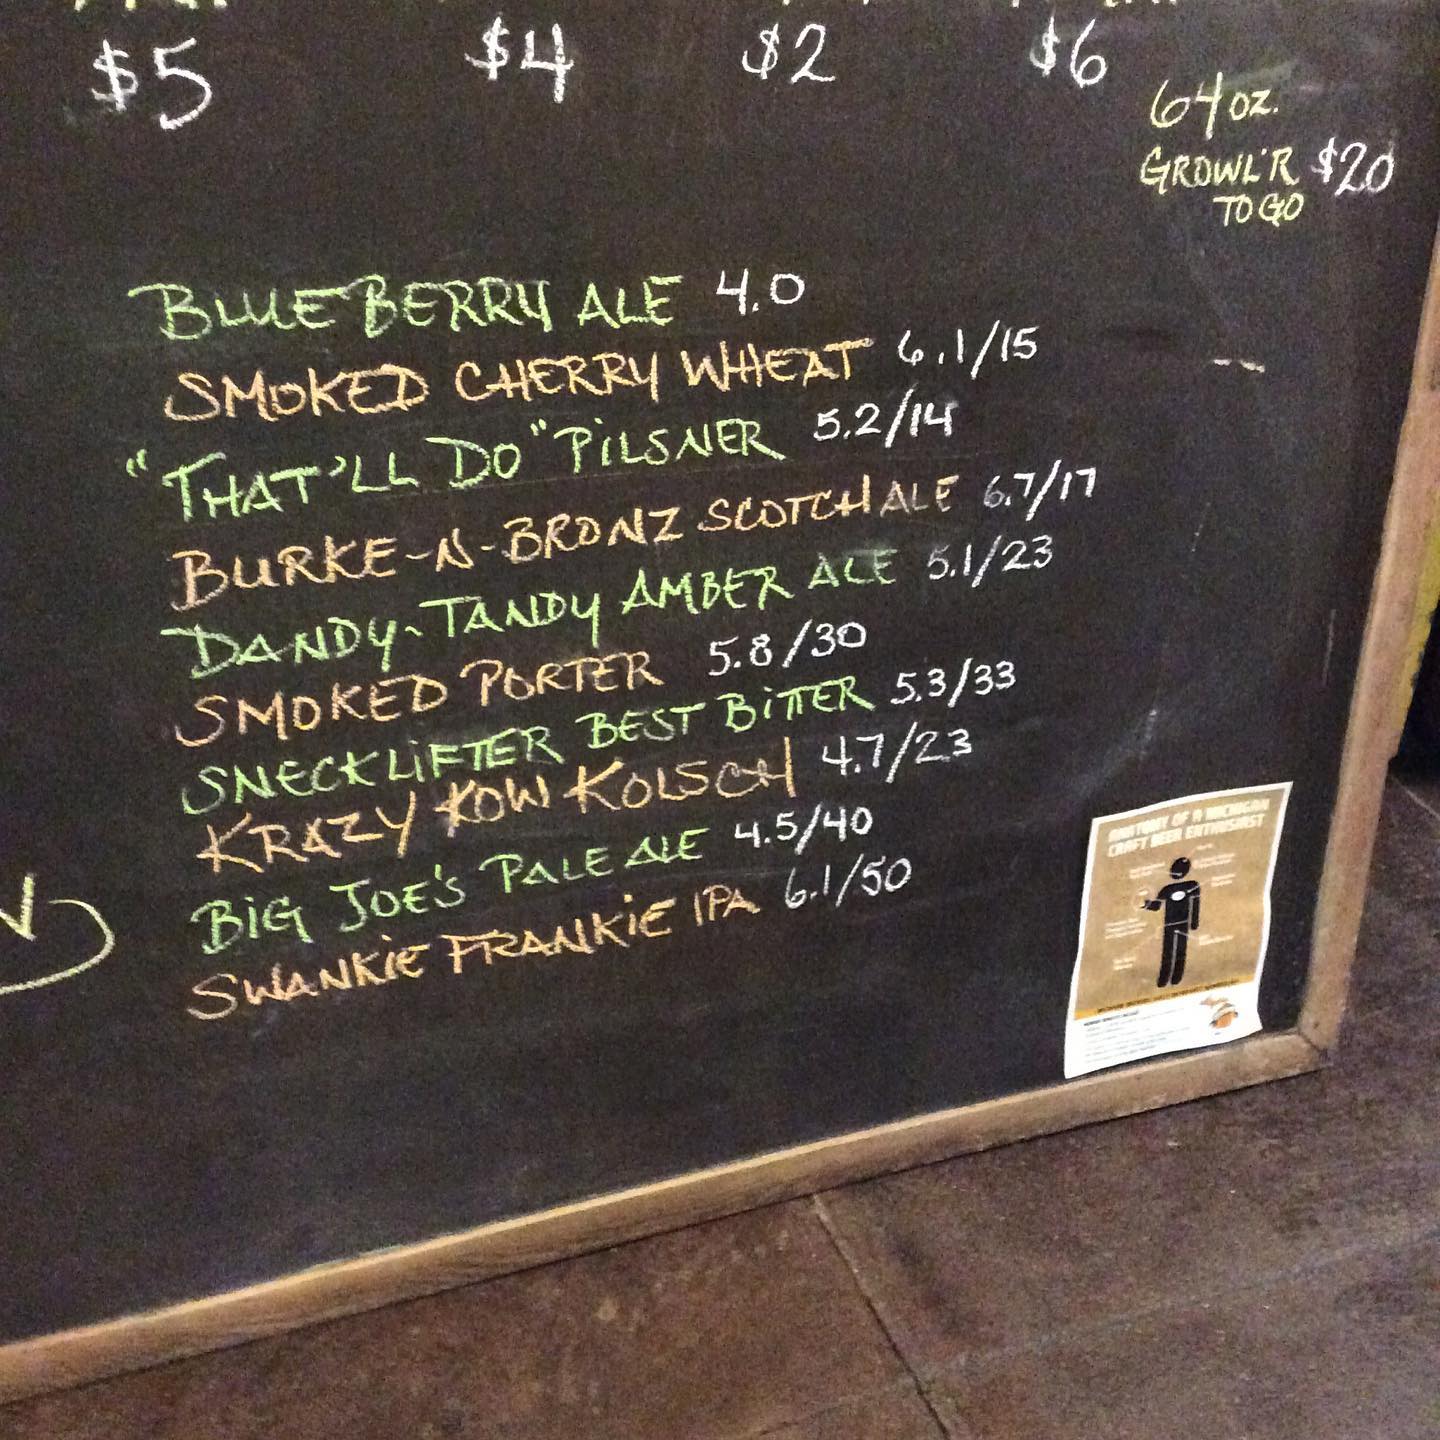 $5 $4 $2 $6
64 oz.
GROWL'R $20
TO GO
BLUEBERRY ALE 4.0
SMOKED CHERRY WHEAT 6.1/15
"THAT'LL DO" PILSNER 5.2/14
BURKE-N-BRONZ SCOTCH ALE 6.7/17
DANDY-TANDY AMBER ALE 5.1/23
SMOKED PORTER 5.8/30
SNECKLIFTER BEST BITTER 5.3/33
KRAZY KOW KOLSCH 4.7/23
BIG JOE'S PALE ALE 4.5/40
SWANKIE FRANKIE IPA 6.1/50
ANATOMY OF A MICHIGAN
CRAFT BEER ENTHUSIAST